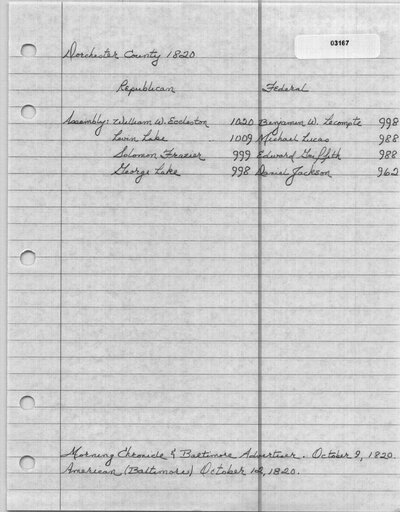 03167
Dorchester County 1820
Republican Federal
Assembly: William W. Eccleston 1020 Benjamin W. Lecompte 998
Levin Lake 1009 Michael Lucas 988
Solomon Frazier 999 Edward Griffith 988
George Lake 998 Daniel Jackson 962
Morning Chronicle & Baltimore Advertiser. October 9, 1820.
American (Baltimore) October 12, 1820.